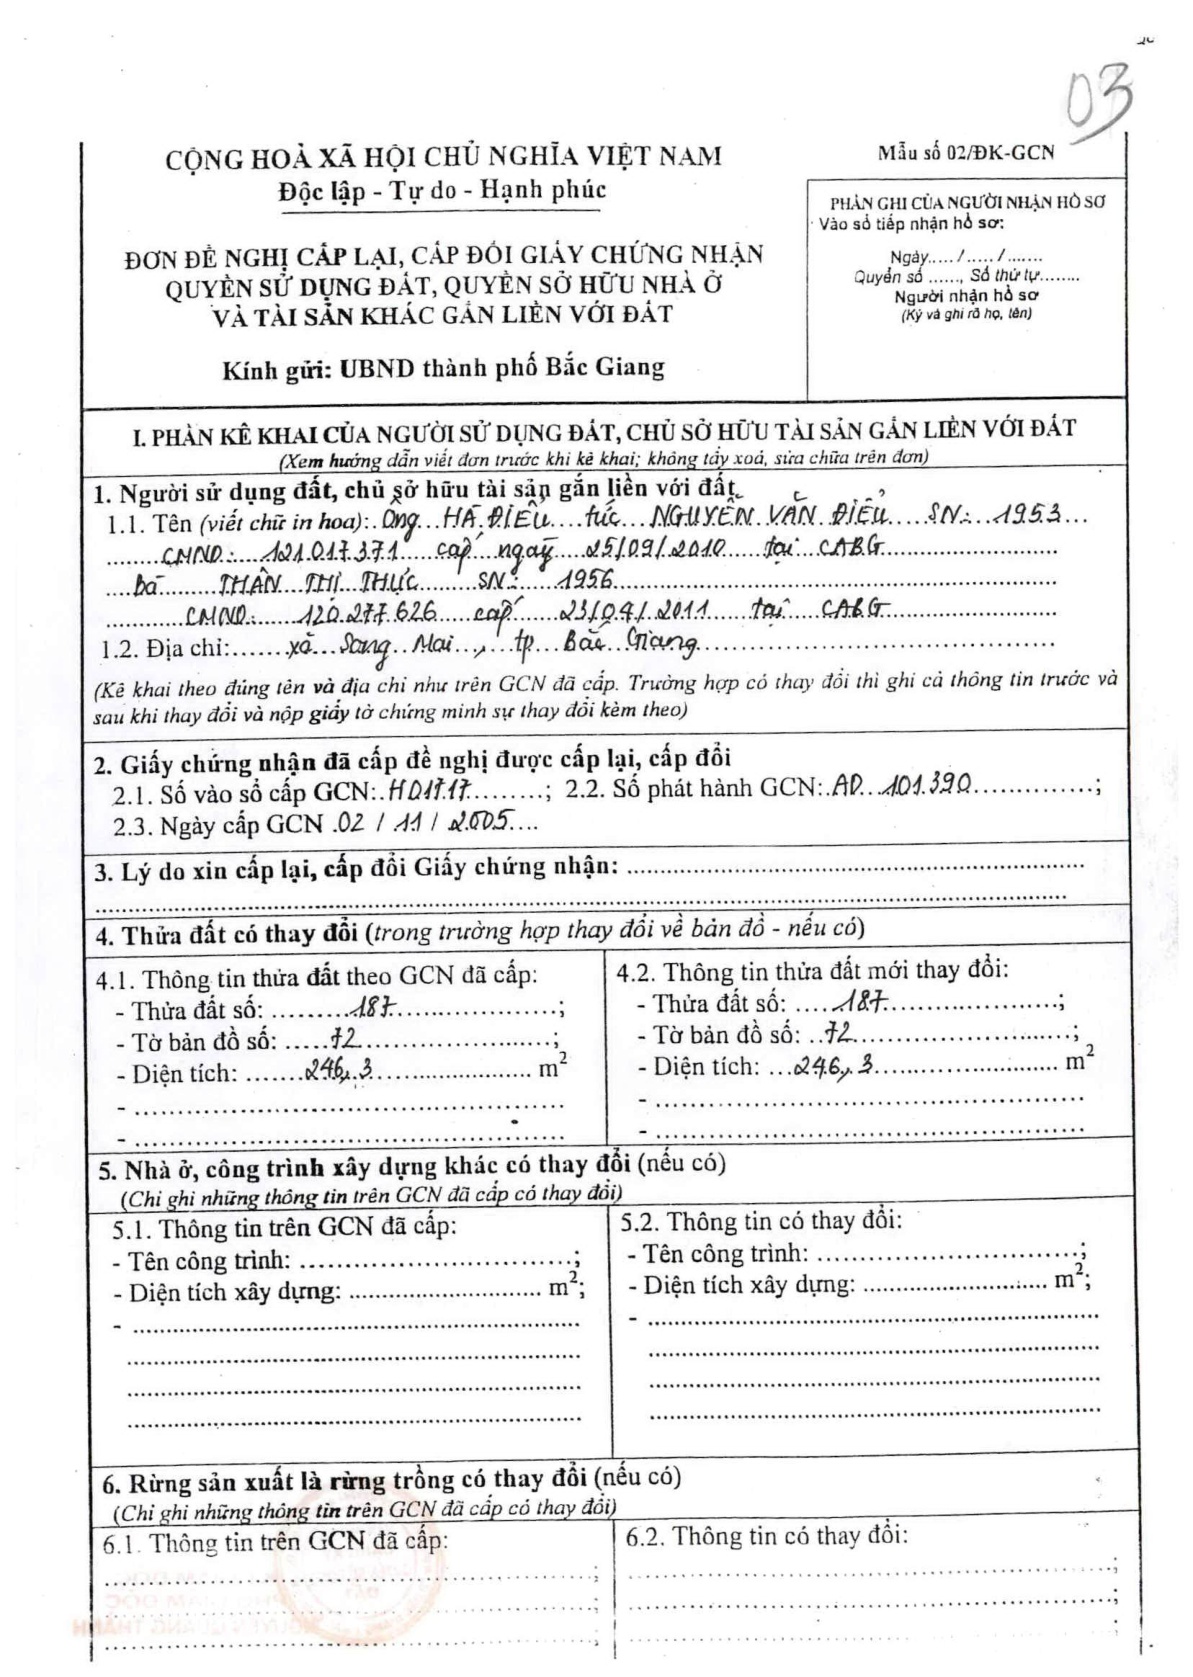 03
CỘNG HOÀ XÃ HỘI CHỦ NGHĨA VIỆT NAM
Độc lập - Tự do - Hạnh phúc
Mẫu số 02/ĐK-GCN
ĐƠN ĐỀ NGHỊ CẤP LẠI, CẤP ĐỔI GIẤY CHỨNG NHẬN
QUYỀN SỬ DỤNG ĐẤT, QUYỀN SỞ HỮU NHÀ Ở
VÀ TÀI SẢN KHÁC GẮN LIỀN VỚI ĐẤT
Kính gửi: UBND thành phố Bắc Giang
PHẦN GHI CỦA NGƯỜI NHẬN HỒ SƠ
Vào sổ tiếp nhận hồ sơ:
Ngày...../...../.......
Quyển số ......, Số thứ tự........
Người nhận hồ sơ
(Ký và ghi rõ họ, tên)
I. PHẦN KÊ KHAI CỦA NGƯỜI SỬ DỤNG ĐẤT, CHỦ SỞ HỮU TÀI SẢN GẮN LIỀN VỚI ĐẤT
(Xem hướng dẫn viết đơn trước khi kê khai; không tẩy xoá, sửa chữa trên đơn)
1. Người sử dụng đất, chủ sở hữu tài sản gắn liền với đất
1.1. Tên (viết chữ in hoa): Ông HÀ ĐIỂU tức NGUYỄN VĂN ĐIỂU SN: 1953
CMND: 121.017.371 cấp ngày 25/09/2010 tại CABG
bà THÂN THỊ THỰC SN: 1956
CMND: 120.277.626 cấp 23/04/2011 tại CABG
1.2. Địa chỉ: xã Song Mai, tp Bắc Giang
(Kê khai theo đúng tên và địa chỉ như trên GCN đã cấp. Trường hợp có thay đổi thì ghi cả thông tin trước và
sau khi thay đổi và nộp giấy tờ chứng minh sự thay đổi kèm theo)
2. Giấy chứng nhận đã cấp đề nghị được cấp lại, cấp đổi
2.1. Số vào sổ cấp GCN: H01717; 2.2. Số phát hành GCN: AD 101.390;
2.3. Ngày cấp GCN 02 / 11 / 2005
3. Lý do xin cấp lại, cấp đổi Giấy chứng nhận:
4. Thửa đất có thay đổi (trong trường hợp thay đổi về bản đồ - nếu có)
4.1. Thông tin thửa đất theo GCN đã cấp:
- Thửa đất số: 187;
- Tờ bản đồ số: 72;
- Diện tích: 246,3 m²
-
-
4.2. Thông tin thửa đất mới thay đổi:
- Thửa đất số: 187;
- Tờ bản đồ số: 72;
- Diện tích: 246,3 m²
-
-
5. Nhà ở, công trình xây dựng khác có thay đổi (nếu có)
(Chỉ ghi những thông tin trên GCN đã cấp có thay đổi)
5.1. Thông tin trên GCN đã cấp:
- Tên công trình: ;
- Diện tích xây dựng: m²;
-
5.2. Thông tin có thay đổi:
- Tên công trình: ;
- Diện tích xây dựng: m²;
-
6. Rừng sản xuất là rừng trồng có thay đổi (nếu có)
(Chỉ ghi những thông tin trên GCN đã cấp có thay đổi)
6.1. Thông tin trên GCN đã cấp:
6.2. Thông tin có thay đổi: